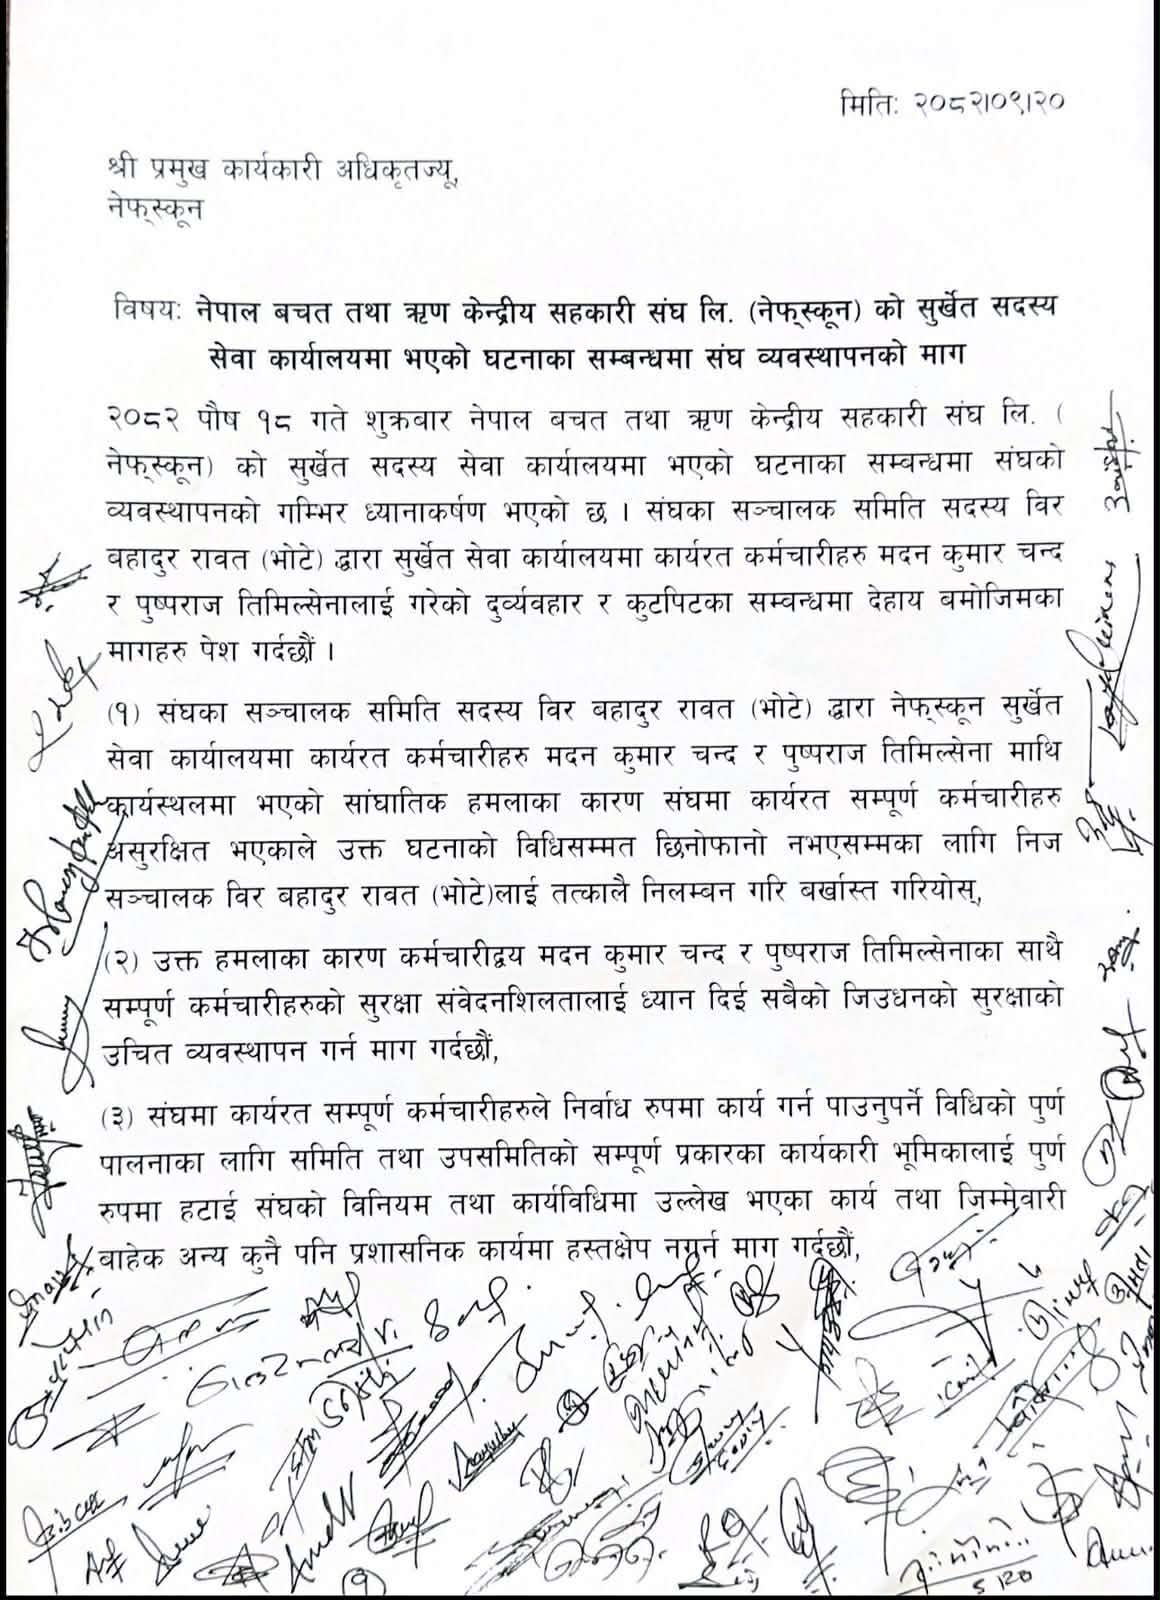 मिति: २०८२।०९।२०
श्री प्रमुख कार्यकारी अधिकृतज्यू,
नेफ्स्कून
विषय: नेपाल बचत तथा ऋण केन्द्रीय सहकारी संघ लि. (नेफ्स्कून) को सुर्खेत सदस्य
सेवा कार्यालयमा भएको घटनाका सम्बन्धमा संघ व्यवस्थापनको माग
२०८२ पौष १८ गते शुक्रवार नेपाल बचत तथा ऋण केन्द्रीय सहकारी संघ लि. (
नेफ्स्कून) को सुर्खेत सदस्य सेवा कार्यालयमा भएको घटनाका सम्बन्धमा संघको
व्यवस्थापनको गम्भिर ध्यानाकर्षण भएको छ । संघका सञ्चालक समिति सदस्य विर
बहादुर रावत (भोटे) द्धारा सुर्खेत सेवा कार्यालयमा कार्यरत कर्मचारीहरु मदन कुमार चन्द
र पुष्पराज तिमिल्सेनालाई गरेको दुर्व्यवहार र कुटपिटका सम्बन्धमा देहाय बमोजिमका
मागहरु पेश गर्दछौं ।
(१) संघका सञ्चालक समिति सदस्य विर बहादुर रावत (भोटे) द्धारा नेफ्स्कून सुर्खेत
सेवा कार्यालयमा कार्यरत कर्मचारीहरु मदन कुमार चन्द र पुष्पराज तिमिल्सेना माथि
कार्यस्थलमा भएको सांघातिक हमलाका कारण संघमा कार्यरत सम्पूर्ण कर्मचारीहरु
असुरक्षित भएकाले उक्त घटनाको विधिसम्मत छिनोफानो नभएसम्मका लागि निज
सञ्चालक विर बहादुर रावत (भोटे)लाई तत्कालै निलम्बन गरि बर्खास्त गरियोस्,
(२) उक्त हमलाका कारण कर्मचारीद्वय मदन कुमार चन्द र पुष्पराज तिमिल्सेनाका साथै
सम्पूर्ण कर्मचारीहरुको सुरक्षा संवेदनशिलतालाई ध्यान दिई सबैको जिउधनको सुरक्षाको
उचित व्यवस्थापन गर्न माग गर्दछौं,
(३) संघमा कार्यरत सम्पूर्ण कर्मचारीहरुले निर्वाध रुपमा कार्य गर्न पाउनुपर्ने विधिको पुर्ण
पालनाका लागि समिति तथा उपसमितिको सम्पूर्ण प्रकारका कार्यकारी भूमिकालाई पुर्ण
रुपमा हटाई संघको विनियम तथा कार्यविधिमा उल्लेख भएका कार्य तथा जिम्मेवारी
बाहेक अन्य कुनै पनि प्रशासनिक कार्यमा हस्तक्षेप नगर्न माग गर्दछौं,
(१)